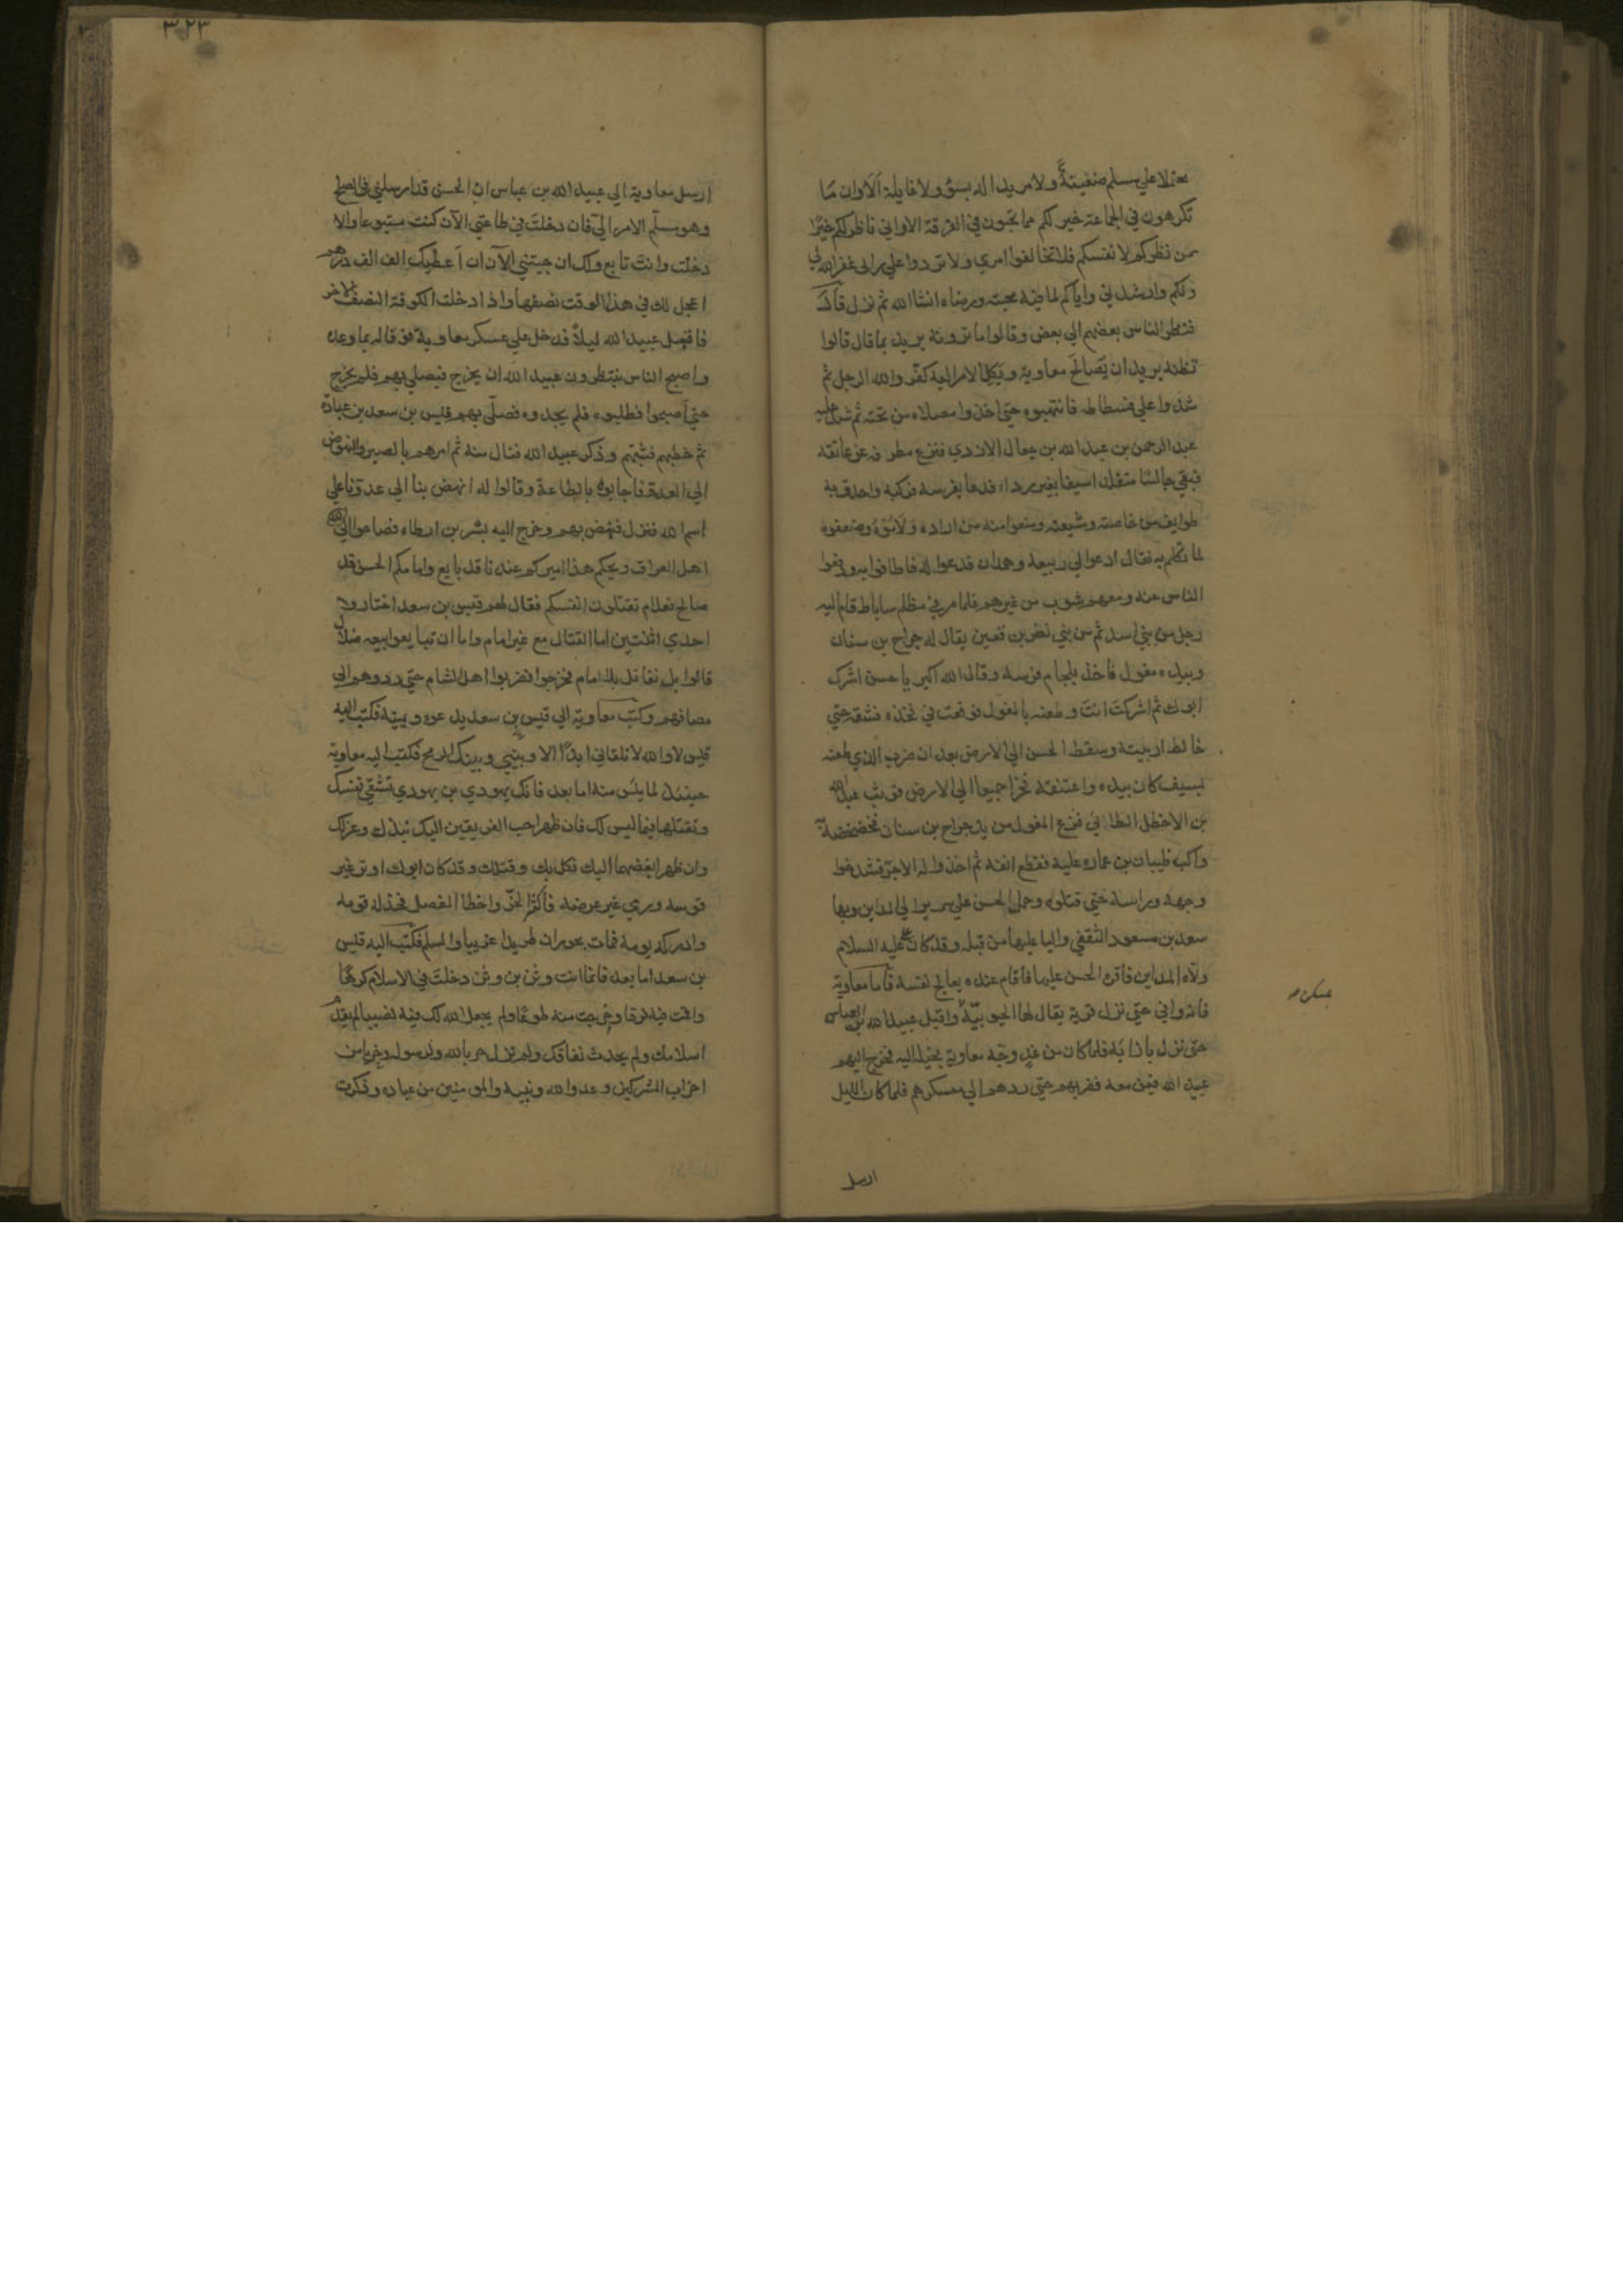 محتملا علي مسلم ضغينةً ولا مريدا له بسؤ ولا غايلة الا وان مَا
تكرهون في الجماعة خير لكم مما تحبون في الفرقة الا واني ناظر لكم خيرًا
من نظركم لانفسكم فلا تخالفوا امري ولا تردوا علي رايى غفر الله لي
ولكم وارشدني واياكم لما فيه محبته ورضاه انشا الله ثم نزل قال
فنظر الناس بعضهم الي بعض وقالوا ما ترونه يريد بما قال قالوا
نظنه يريد ان يصالح معاوية ويكل الامر اليه كفر والله الرجل ثم
شدوا علي فسطاطه فانتهبوه حتي اخذوا مصلاه من تحته ثم شد عليه
عبد الرحمن بن عبد الله بن جعال الازدي فنزع مطرفه عن عاتقه
فبقي جالسًا متقلدا سيفا بغير رداء فدعا بفرسه فركبه واحدق به
طوايف من خاصته وشيعته ومنعوا منه من اراده ولاموه وضعفوه
لما تكلم به فقال ادعوا لي ربيعة وهمدان فدعوا له فاطافوا به ودفعوا
الناس عنه ومعهم شوب من غيرهم فلما مر في مظلم ساباط قام اليه
رجل من بني اسد ثم من بني نصر بن قعين يقال له جراح بن سنان
وبيده مغول فاخذ بلجام فرسه وقال الله اكبر يا حسن اشرك
ابوك ثم اشركت انت وطعنه بالمغول فوقعت في فخذه فشقه حتي
خالط اربيته وسقط الحسن الي الارض بعد ان ضرب الذي طعنه
بسيف كان بيده واعتنقه فخرا جميعا الي الارض فوثب عبد الله
بن الاخطل الطائي فنزع المغول من يد جراح بن سنان فخضخضه به
واكب ظبيان بن عماره عليه فقطع انفه ثم اخذوا له الاجر فشدخوا
وجهه وراسه حتي قتلوه وحمل الحسن علي سرير الي المداين وبها
سعد بن مسعود الثقفي واليا عليها من قبله وقد كان علي عليه السلام
ولاه المداين فاقره الحسن عليها فاقام عنده يعالج نفسه فاما معاوية
فانه وافي حتي نزل قرية يقال لها الحبوبيّة واقبل عبيد الله بن العباس
حتي نزل بازائه فلما كان من غدٍ وجّه معاوية بخيله اليه فخرج اليهم
عبيد الله فيمن معه فضربهم حتي ردهم الي معسكرهم فلما كان الليل
بمسكن
ارسل
٣٢٣
ارسل معاوية الي عبيد الله بن عباس ان الحسن قد ارسلني في الصلح
وهو مسلّم الامر اليّ فان دخلت في طاعتي الآن كنت متبوعا والا
دخلت وانت تابع ولك ان جيتني الآن ان اعطيك الف الف درهم
اعجل لك في هذا الوقت نصفها واذا دخلت الكوفة النصف الاخر
فاقبل عبيد الله ليلاً فدخل علي عسكر معاوية فوفا له بما وعده
واصبح الناس ينتظرون عبيد الله ان يخرج فيصلي بهم فلم يخرج
حتي اصبحوا فطلبوه فلم يجدوه فصلّي بهم قيس بن سعد بن عبادة
ثم خطبهم فثبتهم وذكر عبيد الله فنال منه ثم امرهم بالصبر والنهوض
الي العدو فاجابوه بالطاعة وقالوا له انهض بنا الي عدونا علي
اسم الله فنزل فنهض بهم وخرج اليه بشر بن ارطاه فصاحوا الي
اهل العراق ويحكم هذا اميركم عندنا قد بايع وامامكم الحسن قد
صالح فعلام تقتلون انفسكم فقال لهم قيس بن سعد اختاروا
احدي اثنتين اما القتال مع غير امام واما ان تبايعوا بيعه ضلال
قالوا بل نقاتل بلا امام فخرجوا فضربوا اهل الشام حتي ردوهم الي
مصافهم وكتب معاوية الي قيس بن سعد يدعوه ويمنيه فكتب اليه
قيس لا والله لا تلقاني ابدًا الا وبيني وبينك الرمح فكتب اليه معاوية
حينئذ لما يئس منه اما بعد فانك يهودي بن يهودي تشقي نفسك
وتقتلها فيما ليس لك فان ظهر احب الفريقين اليك نبذك وعزلك
وان ظهر ابغضهما اليك نكل بك وقتلك وقد كان ابوك اوتر غير
قوسه ورمي غير غرضه فاكثر الحزّ واخطا المفصل فخذله قومه
وادركه يومه فمات بحوران طريدا غريبا والسلم فكتب اليه قيس
بن سعد اما بعد فانما انت وثن بن وثن دخلت في الاسلام كرهًا
واقمت فيه فرقا وخرجت منه طوعًا ولم يجعل الله لك فيه نصيبا لم يقدم
اسلامك ولم يحدث نفاقك ولم تزل حربا لله ولرسوله وحزبا من
احزاب المشركين وعدوا لله ونبيه والمومنين من عباده وذكرت